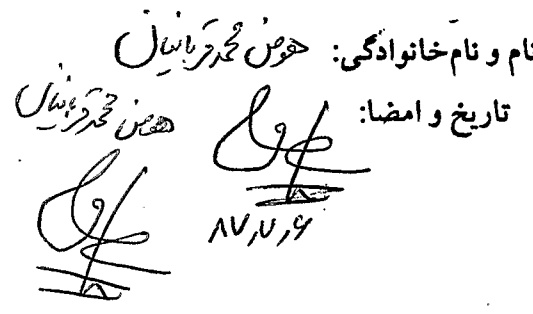 نام و نام‌خانوادگی: هوض محمد قربانیان
تاریخ و امضا: هوض محمد قربانیان
۸۷,۷,۶